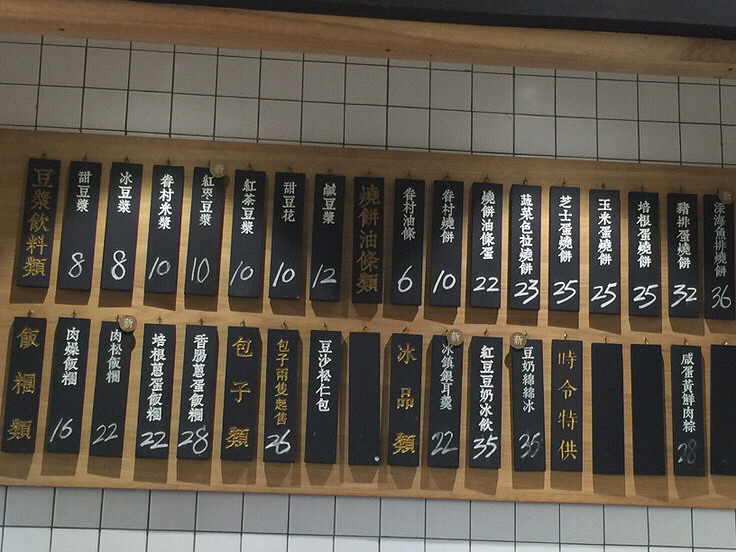 豆漿飲料類
甜豆漿 8
冰豆漿 8
眷村米漿 10
新
紅棗豆漿 10
紅茶豆漿 10
甜豆花 10
鹹豆漿 12
燒餅油條類
眷村油條 6
眷村燒餅 10
燒餅油條蛋 22
蔬菜色拉燒餅 23
芝士蛋燒餅 25
玉米蛋燒餅 25
培根蛋燒餅 25
豬排蛋燒餅 32
深海魚排燒餅 36
飯糰類
肉燥飯糰 16
新
肉松飯糰 22
培根蔥蛋飯糰 22
香腸蔥蛋飯糰 28
包子類
包子兩隻起售 26
豆沙松仁包
冰品類
新
冰鎮銀耳羹 22
紅豆豆奶冰飲 35
新
豆奶綿綿冰 35
時令特供
咸蛋黃鮮肉粽 28